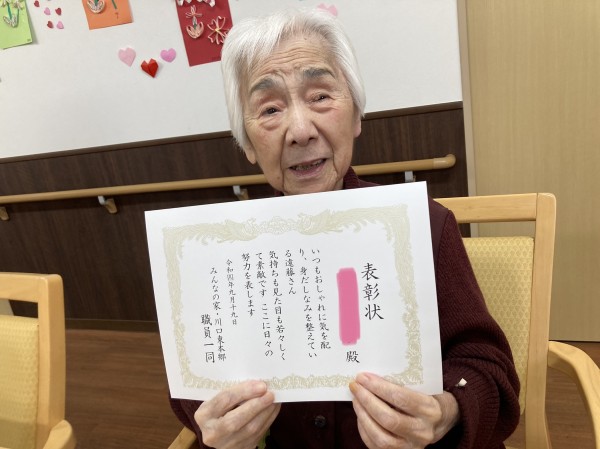 表彰状
殿
いつもおしゃれに気を配
り、身だしなみを整えてい
る遠藤さん
気持ちも見た目も若々しく
て素敵です ここに日々の
努力を表します
令和四年九月十九日
みんなの家・川口東本郷
職員一同